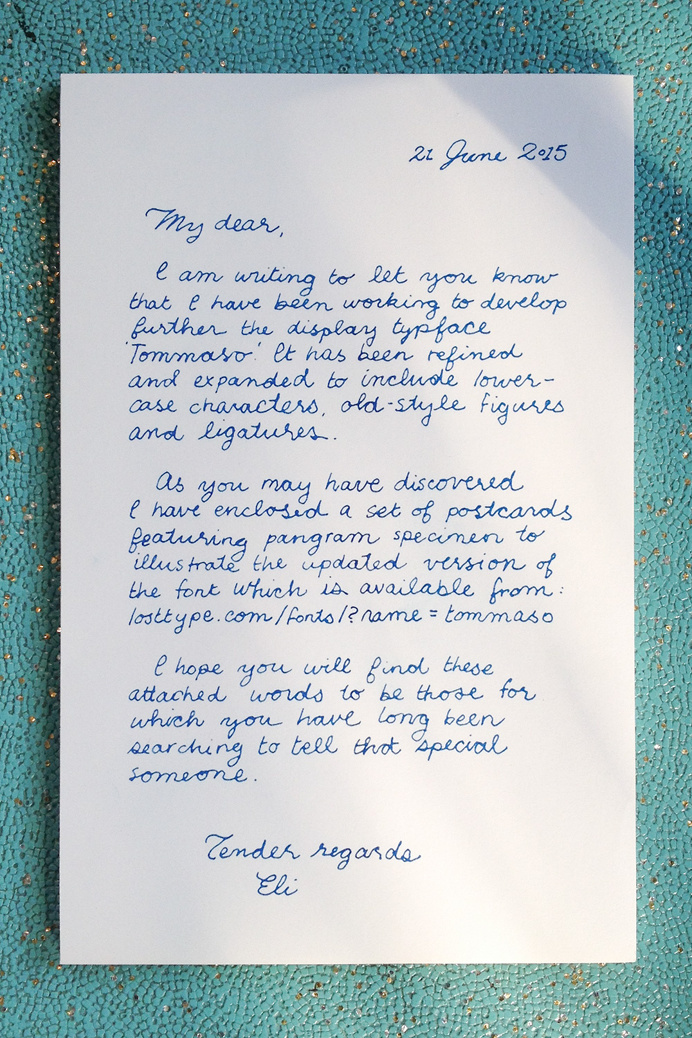 21 June 2015
My dear,
I am writing to let you know
that I have been working to develop
further the display typface
'Tommaso'. It has been refined
and expanded to include lower-
case characters, old-style figures
and ligatures.
As you may have discovered
I have enclosed a set of postcards
featuring pangram specimen to
illustrate the updated version of
the font which is available from:
losttype.com/fonts/?name=tommaso
I hope you will find these
attached words to be those for
which you have long been
searching to tell that special
someone.
Tender regards
Eli